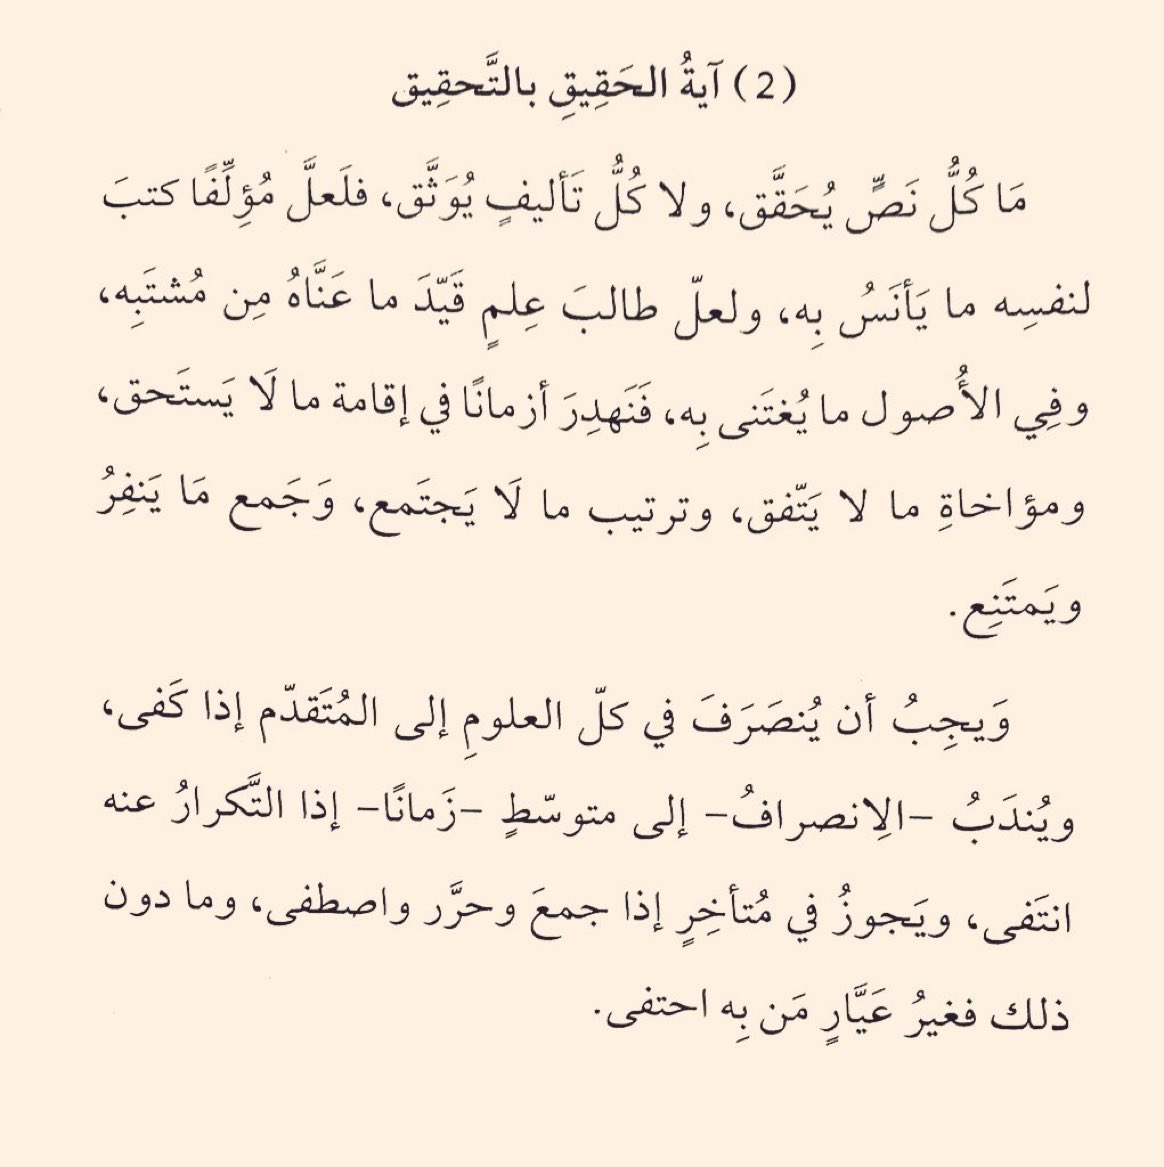 (2) آيةُ الحَقِيقِ بالتَّحقِيق
مَا كُلُّ نَصٍّ يُحَقَّق، ولا كُلُّ تَأليفٍ يُوَثَّق، فلَعلَّ مُؤلِّفًا كتبَ
لنفسِه ما يَأنَسُ بِه، ولعلّ طالبَ عِلمٍ قَيّدَ ما عَنَّاهُ مِن مُشتَبِه،
وفِي الأُصول ما يُغتَنى بِه، فَنَهدِرَ أزمانًا في إقامة ما لَا يَستَحق،
ومؤاخاةِ ما لا يَتّفق، وترتيب ما لَا يَجتَمع، وَجَمع مَا يَنفِرُ
ويَمتَنِع.
وَيجِبُ أن يُنصَرَفَ في كلّ العلومِ إلى المُتَقدّم إذا كَفى،
ويُندَبُ –الِانصرافُ– إلى متوسّطٍ –زَمانًا– إذا التَّكرارُ عنه
انتَفى، ويَجوزُ في مُتأخِرٍ إذا جمعَ وحرَّر واصطفى، وما دون
ذلك فغيرُ عَيَّارٍ مَن بِه احتفى.